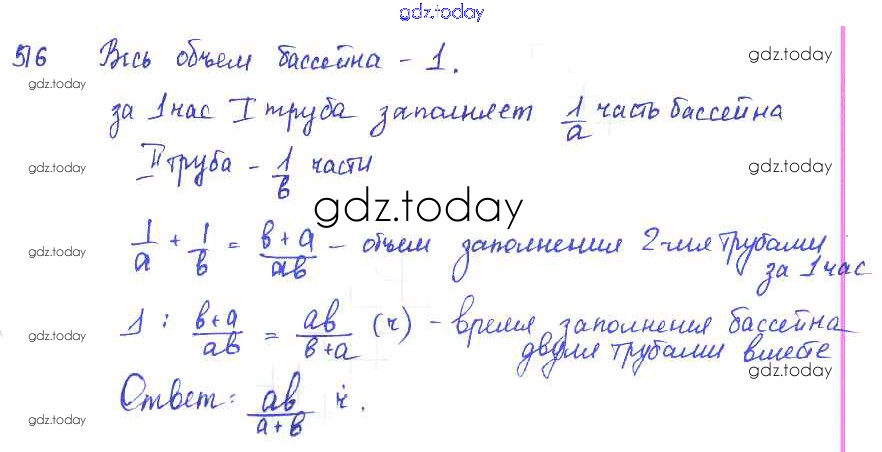 gdz.today
516 Весь объем бассейна - 1. gdz.today
gdz.today
за 1час I труба заполняет 1/a часть бассейна
gdz.today II труба - 1/в части gdz.today
gdz.today
gdz.today 1/a + 1/в = в+a/aв - объем заполнения 2-мя трубами
за 1час
gdz.today 1 : в+a/aв = aв/в+a (ч) - время заполнения бассейна
двумя трубами вместе
gdz.today
Ответ: aв/a+в ч.
gdz.today